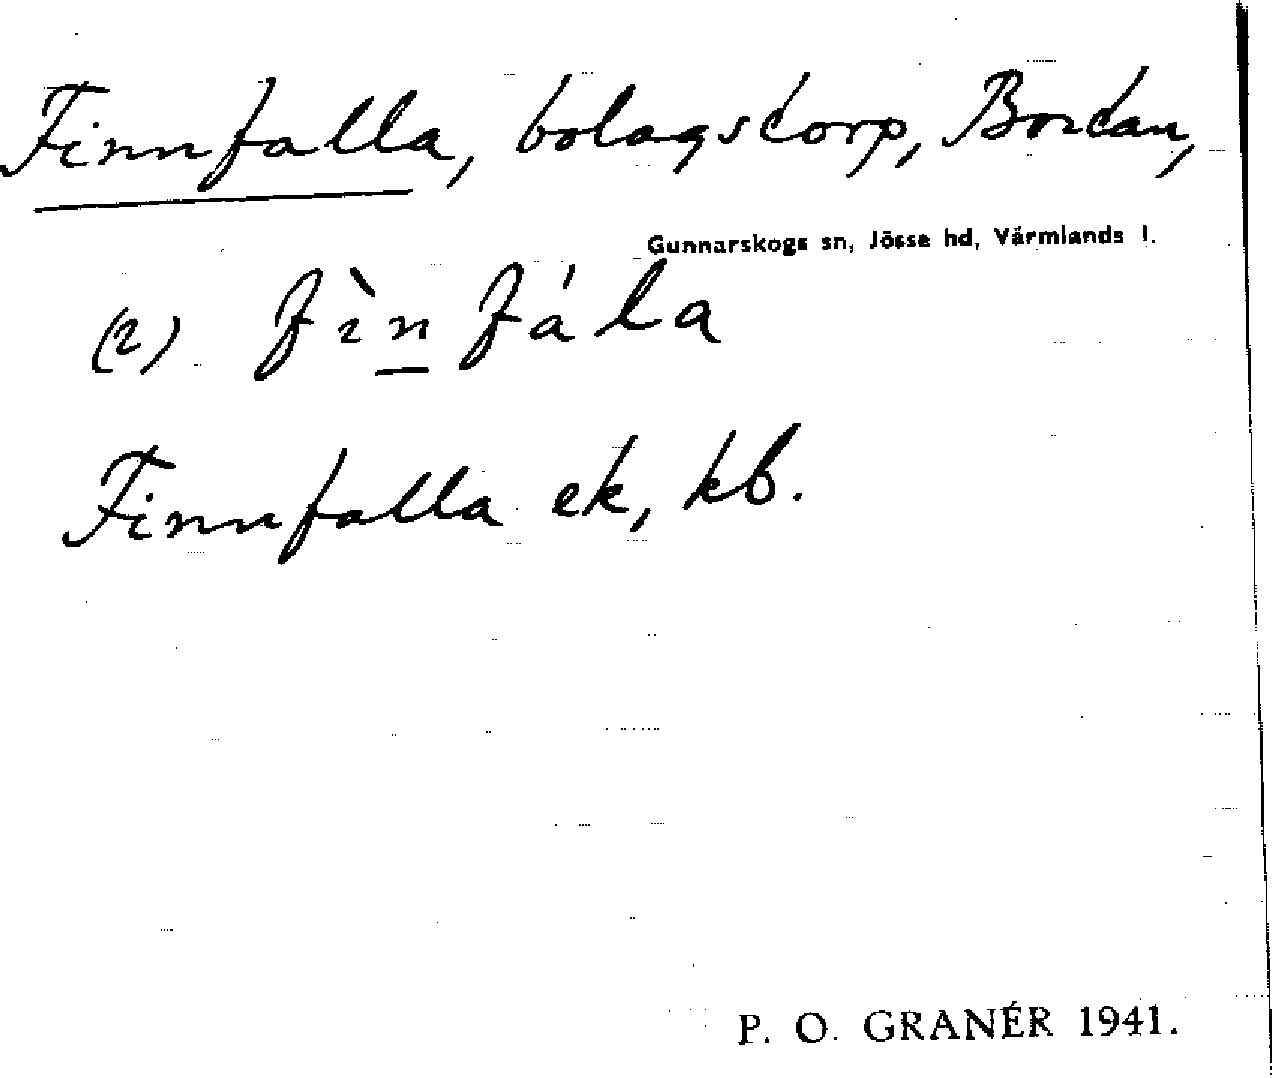 Finnfalla, bolagstorp, Bortan,
Gunnarskogs sn, Jösse hd, Värmlands l.
(2) fìnfála
Finnfalla ek, kb.
P. O. GRANÉR 1941.